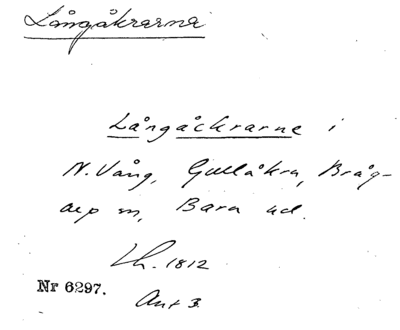 Långåkrarna
Långåckrarne i
N. Vång, Gullåkra, Bråg-
arp sn, Bara hd.
Lh. 1812
Nr 6297.
Akt 3.